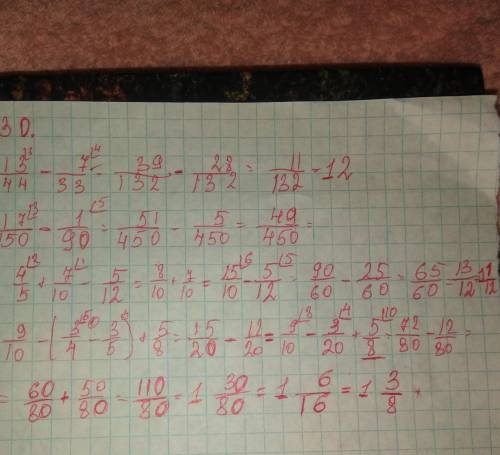 3D.
13/44 - 7/33 = 39/132 - 28/132 = 11/132 = 12
17/150 - 1/90 = 51/450 - 5/450 = 49/450 =
4/5 + 7/10 - 5/12 = 8/10 + 7/10 = 15/10 - 5/12 = 90/60 - 25/60 = 65/60 = 13/12 =
9/10 - (3/4 - 3/5) + 5/8 = 15/20 - 12/20 = 9/10 - 3/20 + 5/8 = 72/80 - 12/80 =
= 60/80 + 50/80 = 110/80 = 1 30/80 = 1 6/16 = 1 3/8 .